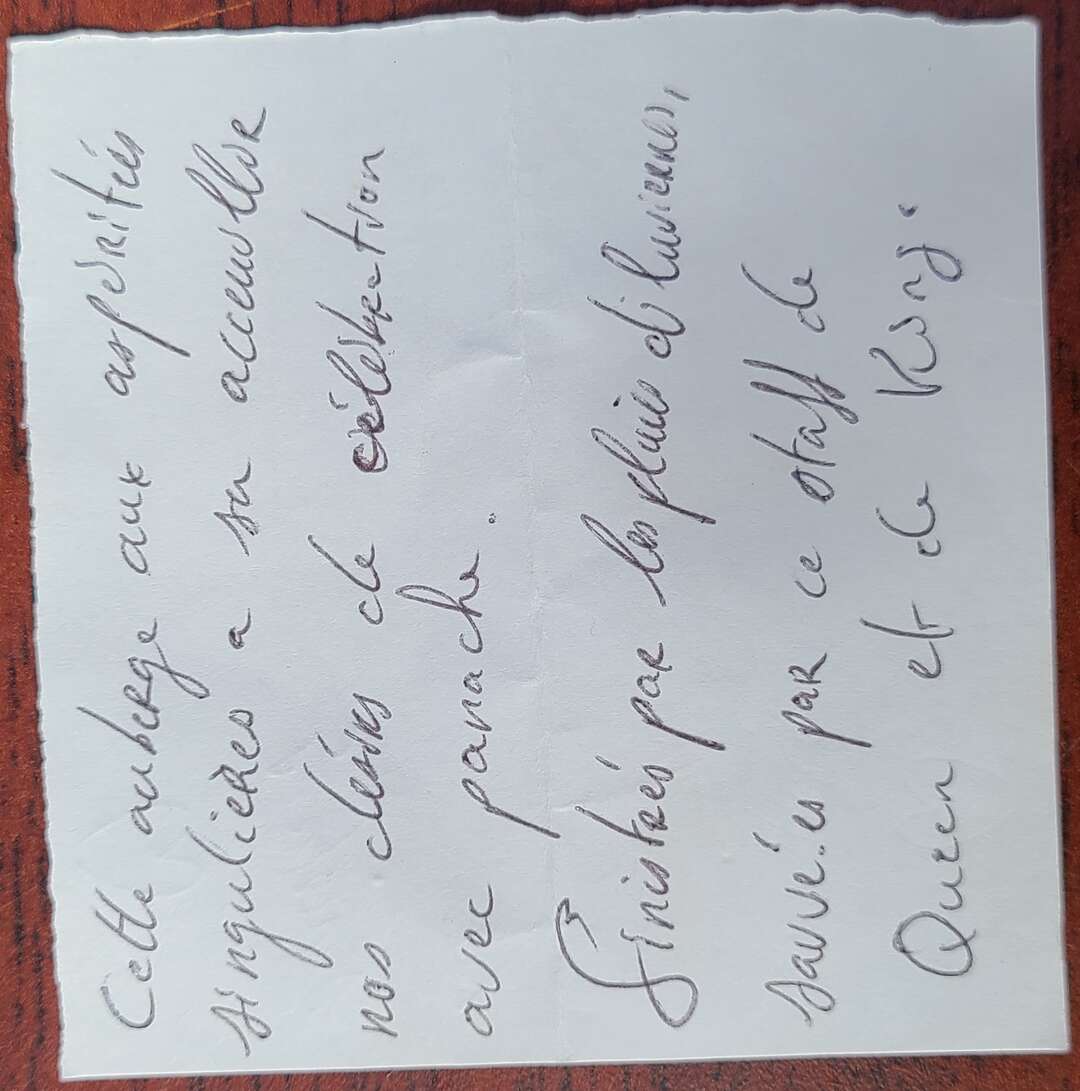 Cette auberge aux aspérités
singulières a su accueillir
nos désirs de célébration
avec panache.
Sinistrés par les pluies diluviennes,
sauvé.es par ce staff de
Queen et de King.